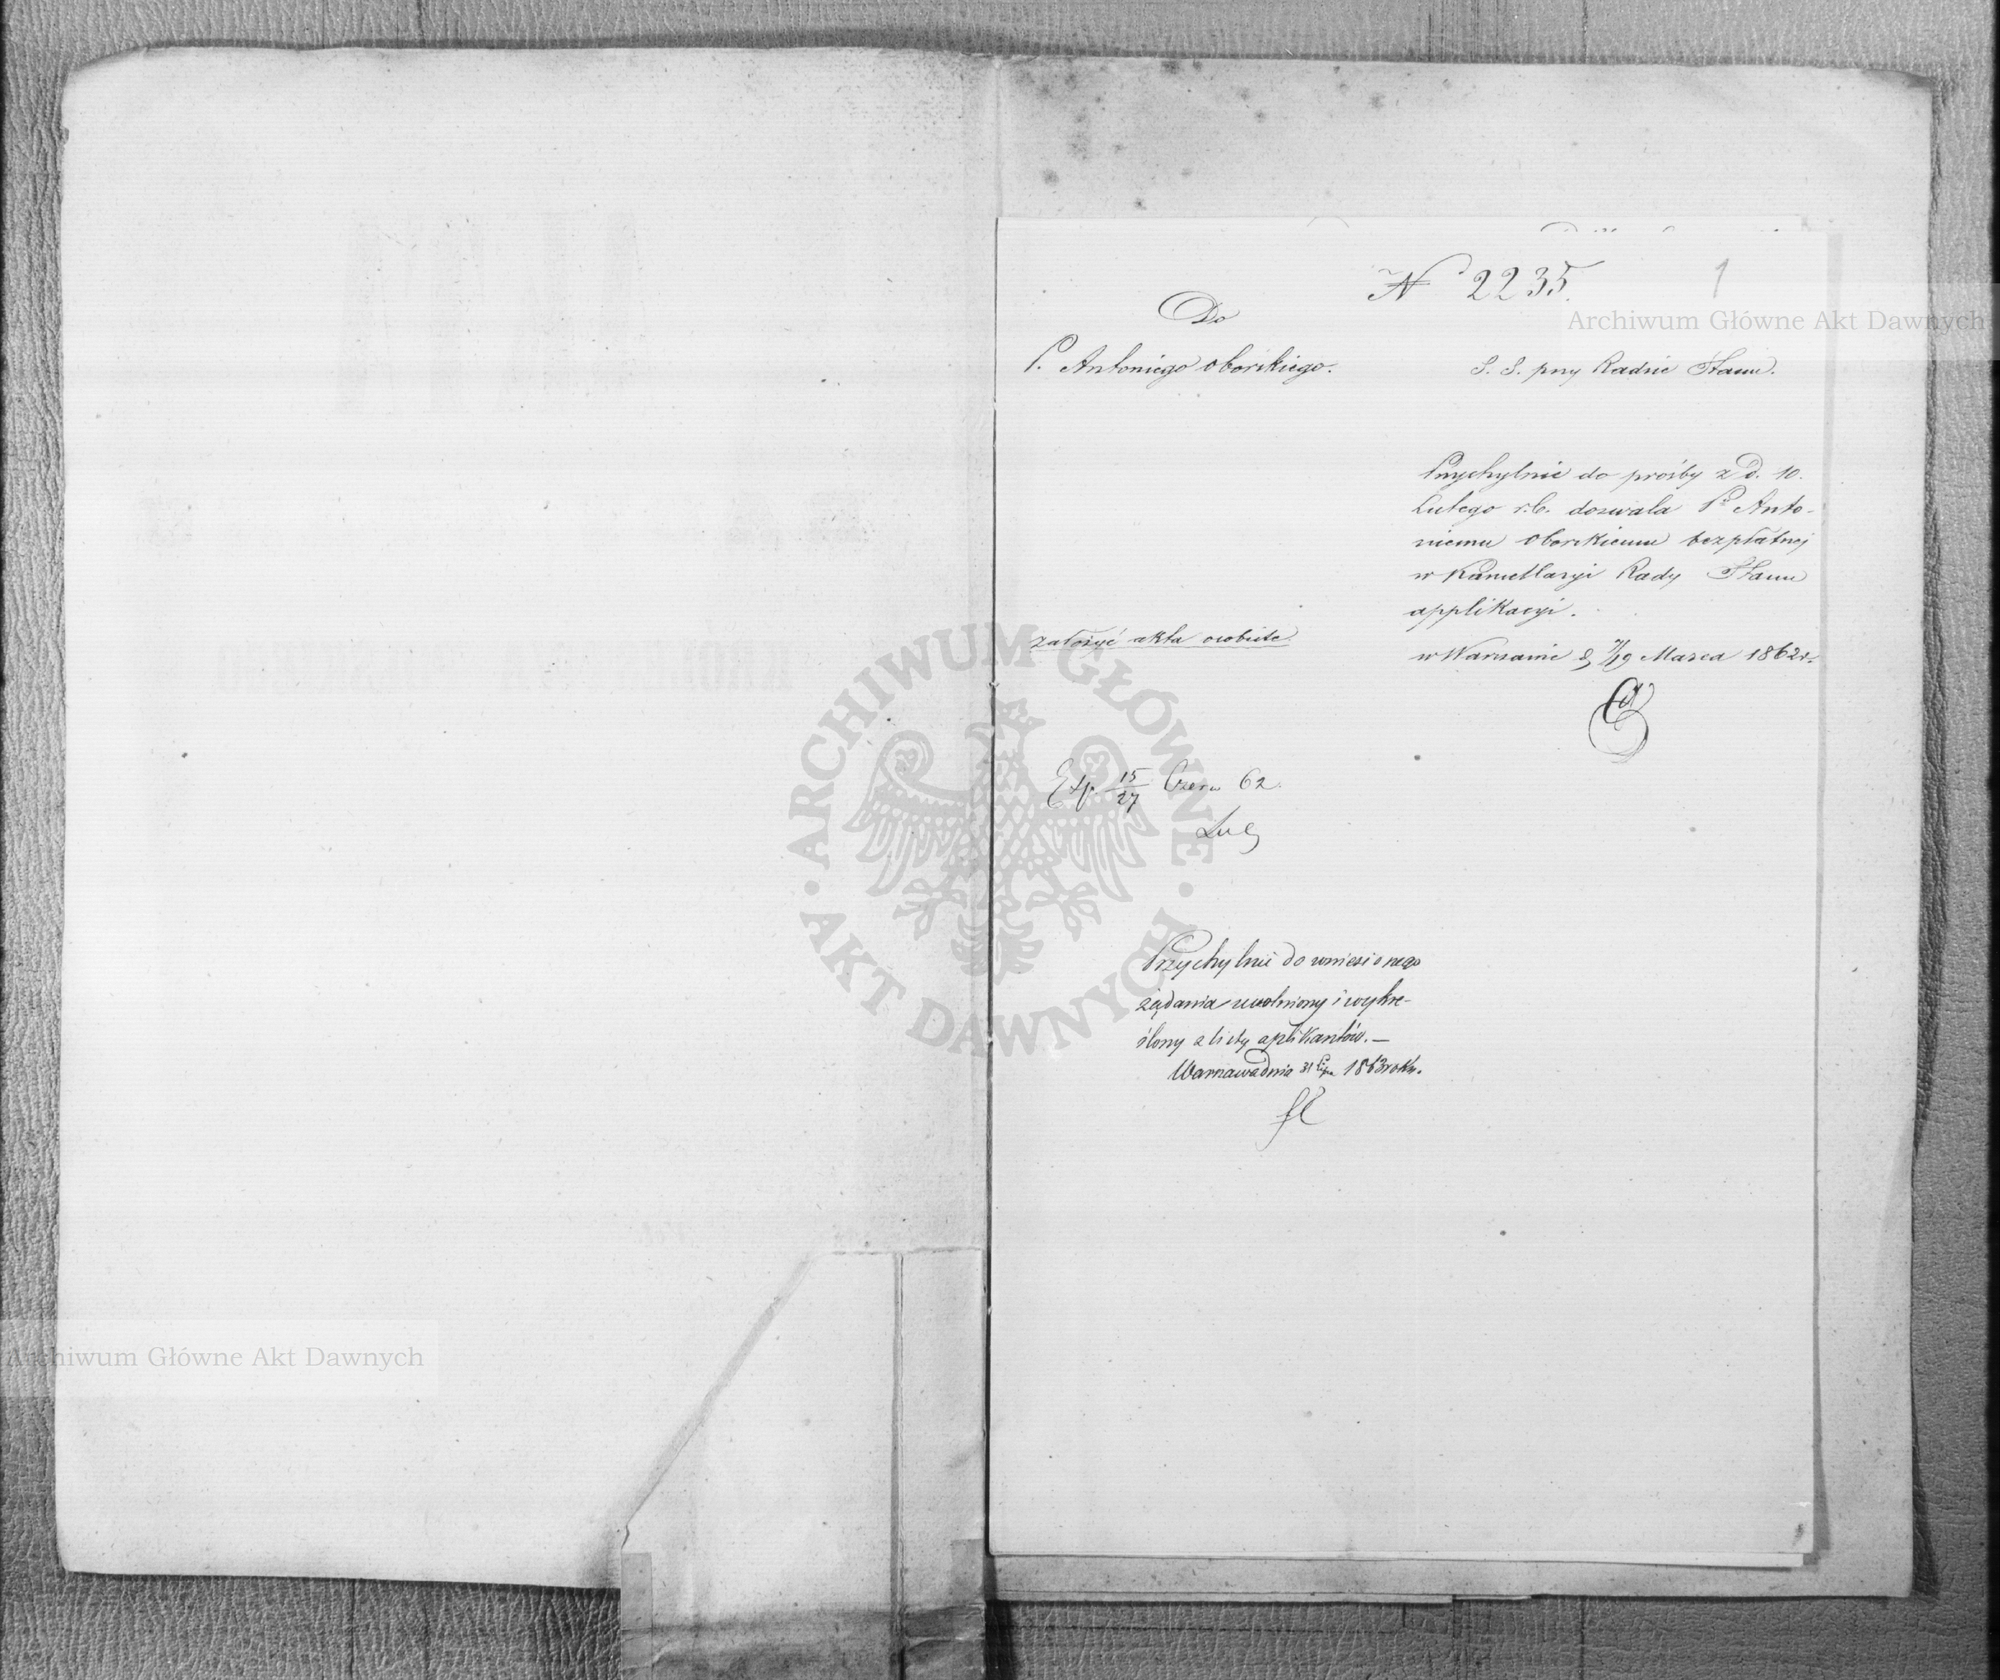 1
N 2235.
Do
P. Antoniego Oborskiego.
S. S. przy Radzie Stanu.
Przychylnie do prośby z d. 10.
Lutego r.b. dozwala P. Anto-
niemu Oborskiemu bezpłatnej
w Kancellaryi Rady Stanu
applikacyi.
w Warszawie d 7/19 Marca 1862 r.
założyć akta osobiste
Exp. 15/27 Czerw 62.
Przychylnie do wniesionego
żądania uwolniony i wykre-
ślony z listy aplikantów. —
Warszawa dnia 31 Lipa 1863 roku.
Archiwum Główne Akt Dawnych
ARCHIWUM GŁÓWNE · AKT DAWNYCH ·
Archiwum Główne Akt Dawnych